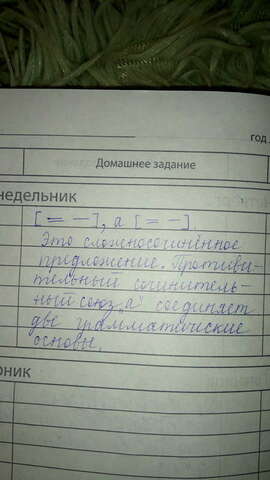 год
Домашнее задание
недельник
[= —], а [= —].
Это сложносочинённое
предложение. Противи-
тельный сочинитель-
ный союз „а" соединяет
две грамматические
основы.
рник